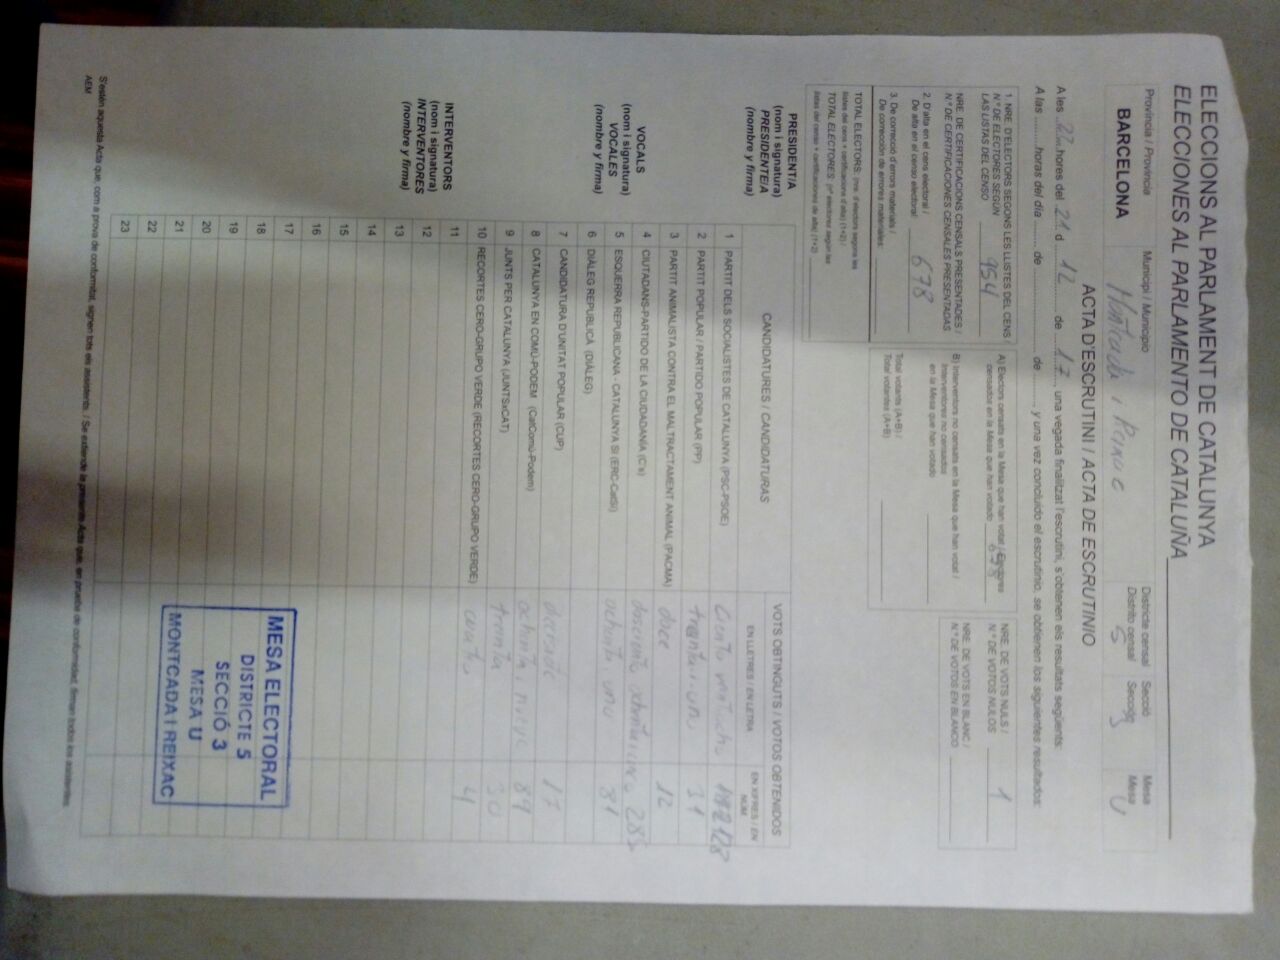 ELECCIONS AL PARLAMENT DE CATALUNYA
ELECCIONES AL PARLAMENTO DE CATALUÑA
Província / Provincia
BARCELONA
Municipi / Municipio
Montcada i Reixac
Districte censal
Distrito censal
5
Secció
Sección
3
Mesa
Mesa
U
ACTA D'ESCRUTINI / ACTA DE ESCRUTINIO
A les 22 hores del 21 d 12 de 17, una vegada finalitzat l'escrutini, s'obtenen els resultats següents:
A las horas del día de de y una vez concluido el escrutinio, se obtienen los siguientes resultados:
1. NRE. D'ELECTORS SEGONS LES LLISTES DEL CENS /
N.º DE ELECTORES SEGÚN
LAS LISTAS DEL CENSO 954
NRE. DE CERTIFICACIONS CENSALS PRESENTADES /
N.º DE CERTIFICACIONES CENSALES PRESENTADAS
2. D'alta en el cens electoral /
De alta en el censo electoral: 678
3. De correcció d'errors materials /
De corrección de errores materiales:
TOTAL ELECTORS: (nre. d'electors segons les
llistes del cens + certificacions d'alta) (1+2) /
TOTAL ELECTORES: (nº electores según las
listas del censo + certificaciones de alta) (1+2)
A) Electors censats en la Mesa que han votat / Electores
censados en la Mesa que han votado 678
B) Interventors no censats en la Mesa que han votat /
Interventores no censados
en la Mesa que han votado
Total votants (A+B) /
Total votantes (A+B)
NRE. DE VOTS NULS /
N.º DE VOTOS NULOS 1
NRE. DE VOTS EN BLANC /
N.º DE VOTOS EN BLANCO
CANDIDATURES / CANDIDATURAS
VOTS OBTINGUTS / VOTOS OBTENIDOS
EN LLETRES / EN LETRA
EN XIFRES / EN NÚM.
1 PARTIT DELS SOCIALISTES DE CATALUNYA (PSC-PSOE) 128
2 PARTIT POPULAR / PARTIDO POPULAR (PP) 31
3 PARTIT ANIMALISTA CONTRA EL MALTRACTAMENT ANIMAL (PACMA) doce 12
4 CIUTADANS-PARTIDO DE LA CIUDADANÍA (C's) 285
5 ESQUERRA REPUBLICANA - CATALUNYA SÍ (ERC-CatSí) ochenta uno 81
6 DIÀLEG REPUBLICÀ (DIÀLEG)
7 CANDIDATURA D'UNITAT POPULAR (CUP) 17
8 CATALUNYA EN COMÚ-PODEM (CatComú-Podem) ochenta i nueve 89
9 JUNTS PER CATALUNYA (JUNTSxCAT) treinta 30
10 RECORTES CERO-GRUPO VERDE (RECORTES CERO-GRUPO VERDE) cuatro 4
11
12
13
14
15
16
17
18
19
20
21
22
23
PRESIDENT/A
(nom i signatura)
PRESIDENTE/A
(nombre y firma)
VOCALS
(nom i signatura)
VOCALES
(nombre y firma)
INTERVENTORS
(nom i signatura)
INTERVENTORES
(nombre y firma)
MESA ELECTORAL
DISTRICTE 5
SECCIÓ 3
MESA U
MONTCADA I REIXAC
S'estén aquesta Acta que, com a prova de conformitat, signen tots els assistents. / Se extiende la presente Acta que, en prueba de conformidad, firman todos los asistentes.
AEM